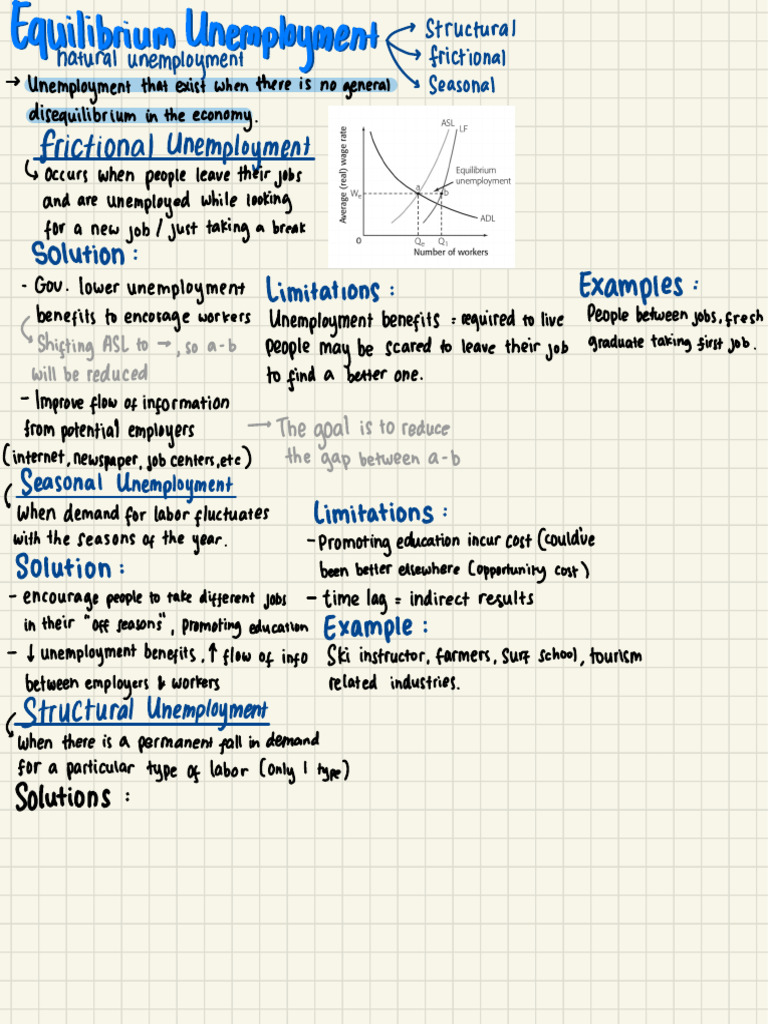 Equilibrium Unemployment
Structural
frictional
Seasonal
natural unemployment
→ Unemployment that exist when there is no general
disequilibrium in the economy.
frictional Unemployment
↳ Occurs when people leave their jobs
and are unemployed while looking
for a new job / just taking a break
Average (real) wage rate
ASL
LF
Equilibrium
unemployment
We
a
b
ADL
O
Qe
Q1
Number of workers
Solution:
- Gov. lower unemployment
benefits to encorage workers
↳ Shifting ASL to →, so a-b
will be reduced
- Improve flow of information
from potential employers
(internet, newspaper, job centers, etc)
Limitations:
Unemployment benefits = required to live
people may be scared to leave their job
to find a better one.
→ The goal is to reduce
the gap between a-b
Examples:
People between jobs, fresh
graduate taking first job.
Seasonal Unemployment
When demand for labor fluctuates
with the seasons of the year.
Solution:
- encourage people to take different jobs
in their "off seasons", promoting education
- ↓ unemployment benefits, ↑ flow of info
between employers & workers
Limitations:
- Promoting education incur cost (could've
been better elsewhere (opportunity cost)
- time lag = indirect results
Example:
Ski instructor, farmers, surf school, tourism
related industries.
Structural Unemployment
When there is a permanent fall in demand
for a particular type of labor (only 1 type)
Solutions: